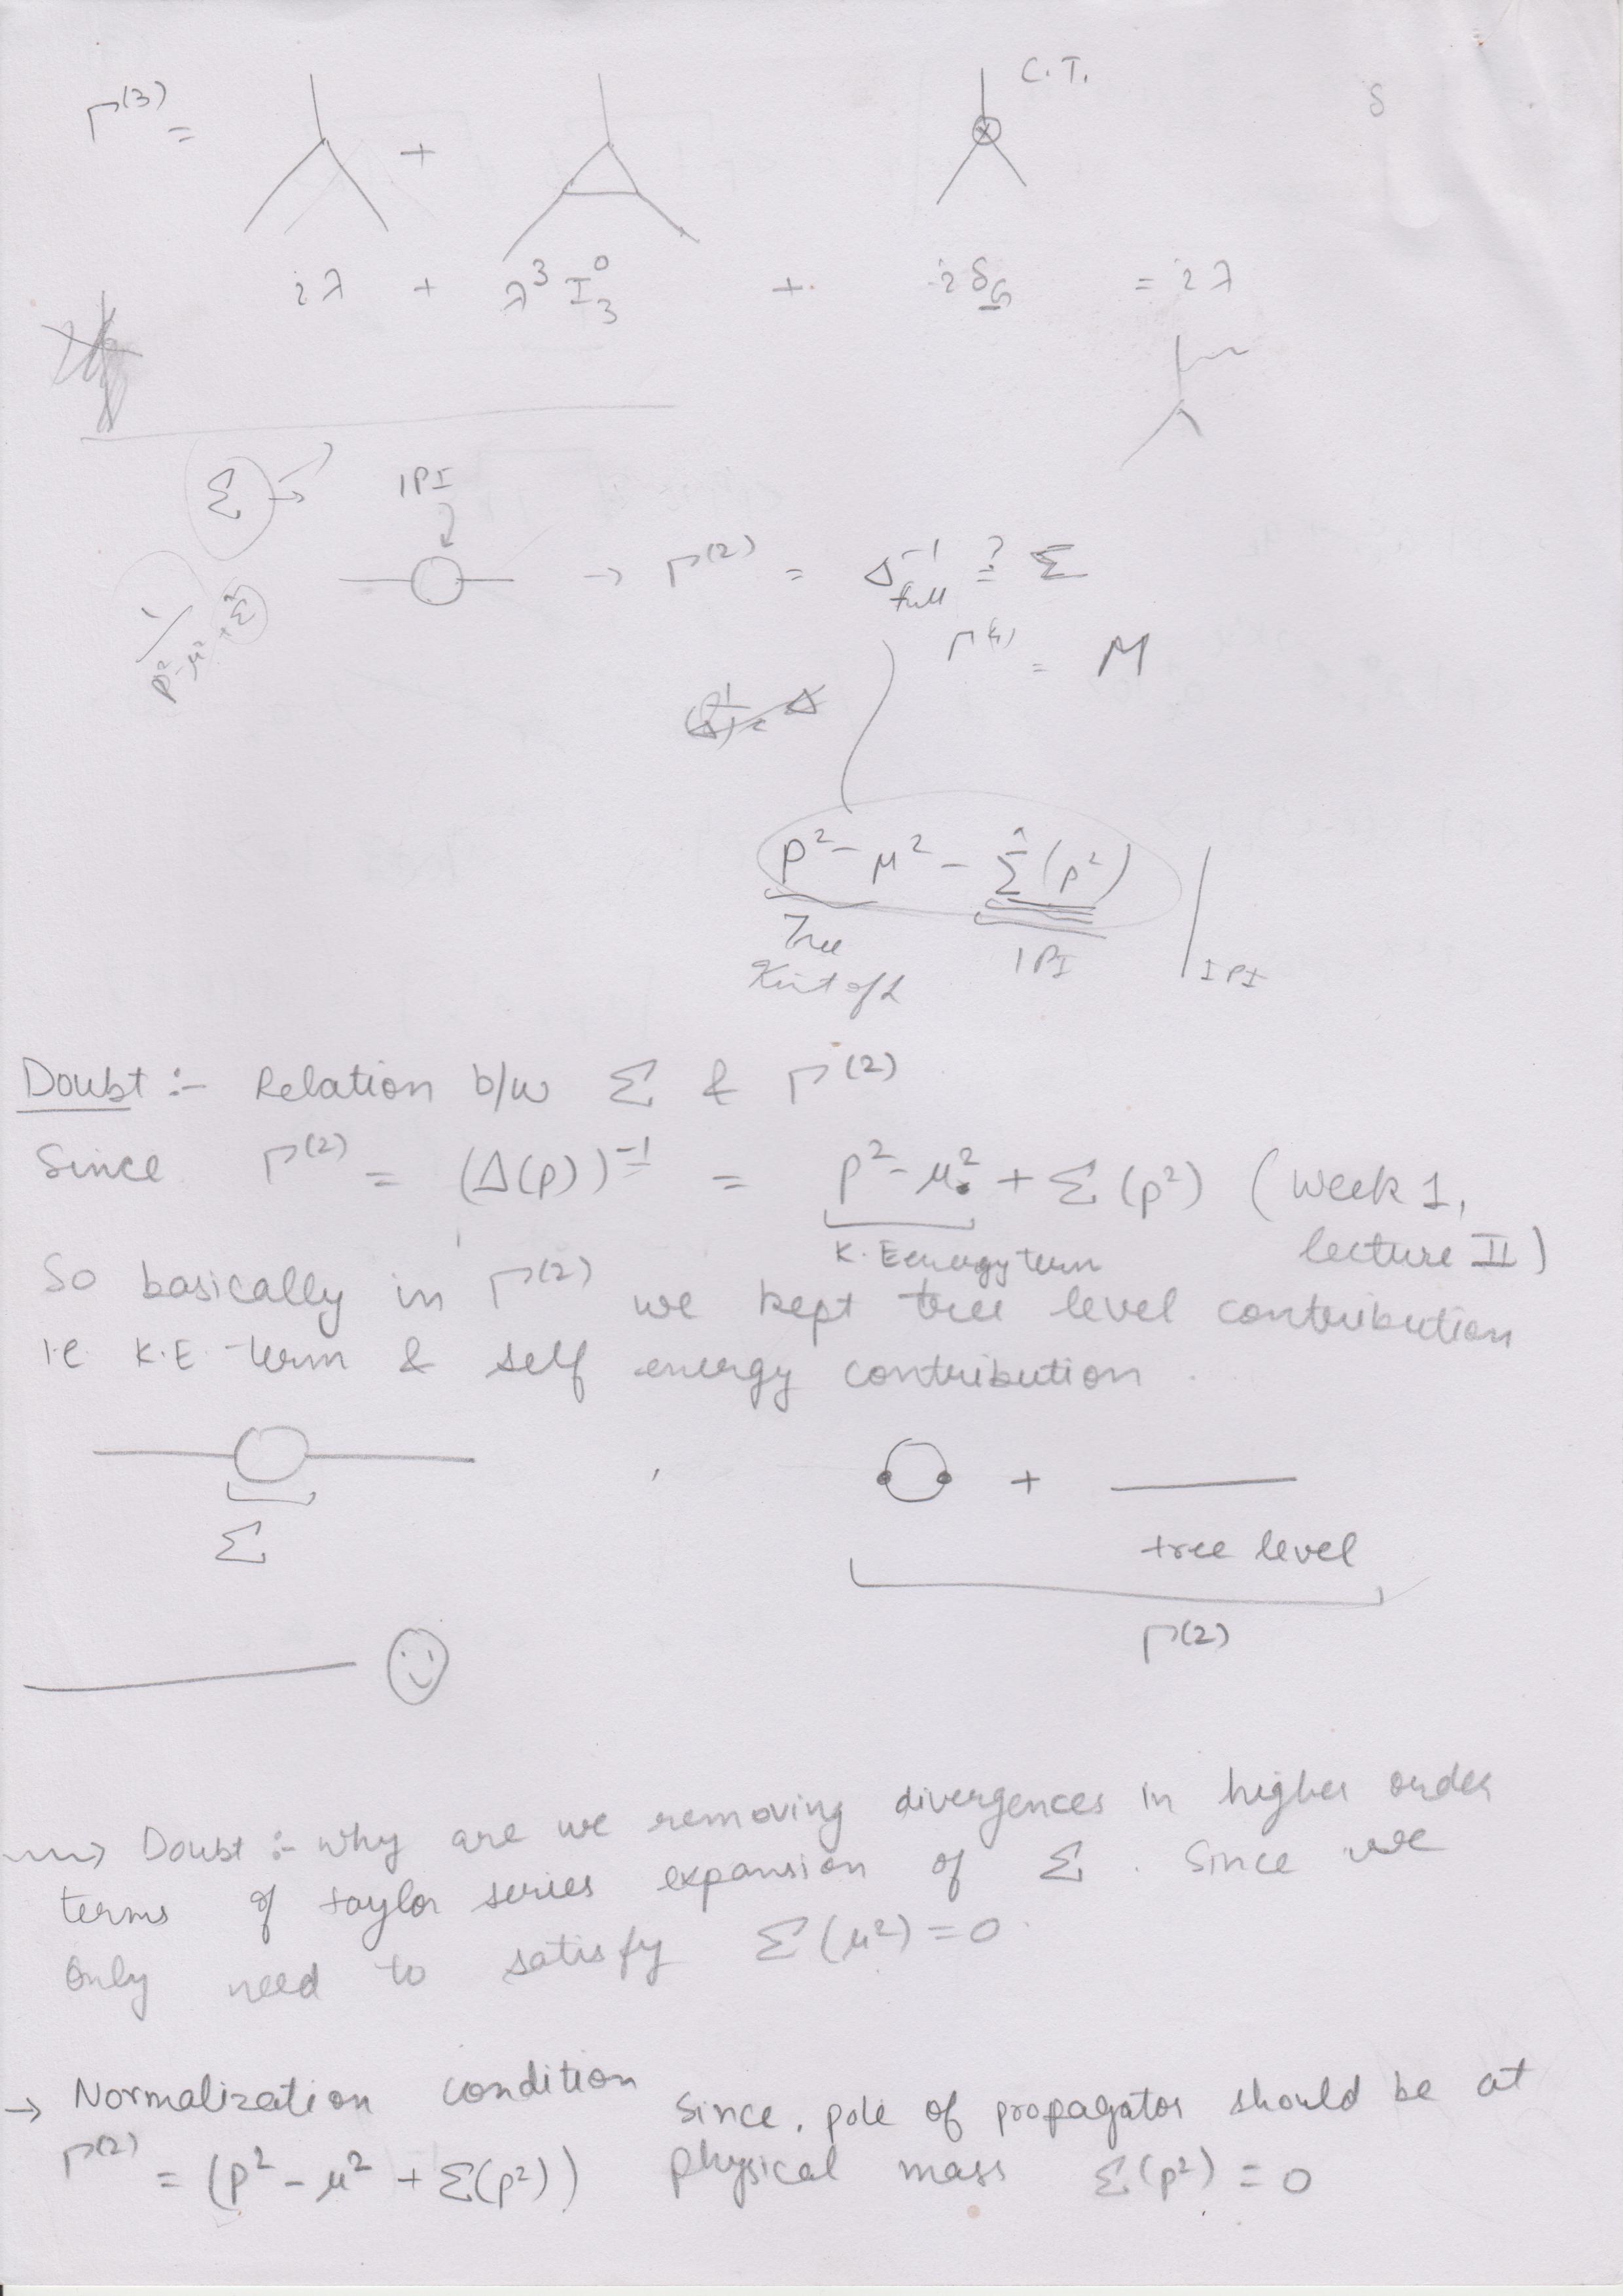 Γ^(3) =
+
C.T.
δ
iλ + λ^3 I_3^0 + i δ_G = iλ
Σ →
1PI
→ Γ^(2) = Δ^-1_full ?= Σ
1 / p^2-μ^2 + Σ̂
Γ^(4) = M
p^2 - μ^2 - Σ̂(p^2)
Tree
1PI
1PI
Doubt :- Relation b/w Σ & Γ^(2)
Since Γ^(2) = (Δ(p))^-1 = p^2 - μ_0^2 + Σ(p^2) (week 1,
K. Eenergy term
lecture II)
So basically in Γ^(2) we kept tree level contribution
i.e K.E. term & self energy contribution.
+
Σ
tree level
Γ^(2)
Doubt :- why are we removing divergences in higher order
terms of taylor series expansion of Σ. Since we
only need to satisfy Σ(μ^2) = 0.
→ Normalization condition Since, pole of propagator should be at
Γ^(2) = (p^2 - μ^2 + Σ(p^2)) physical mass Σ(p^2) = 0